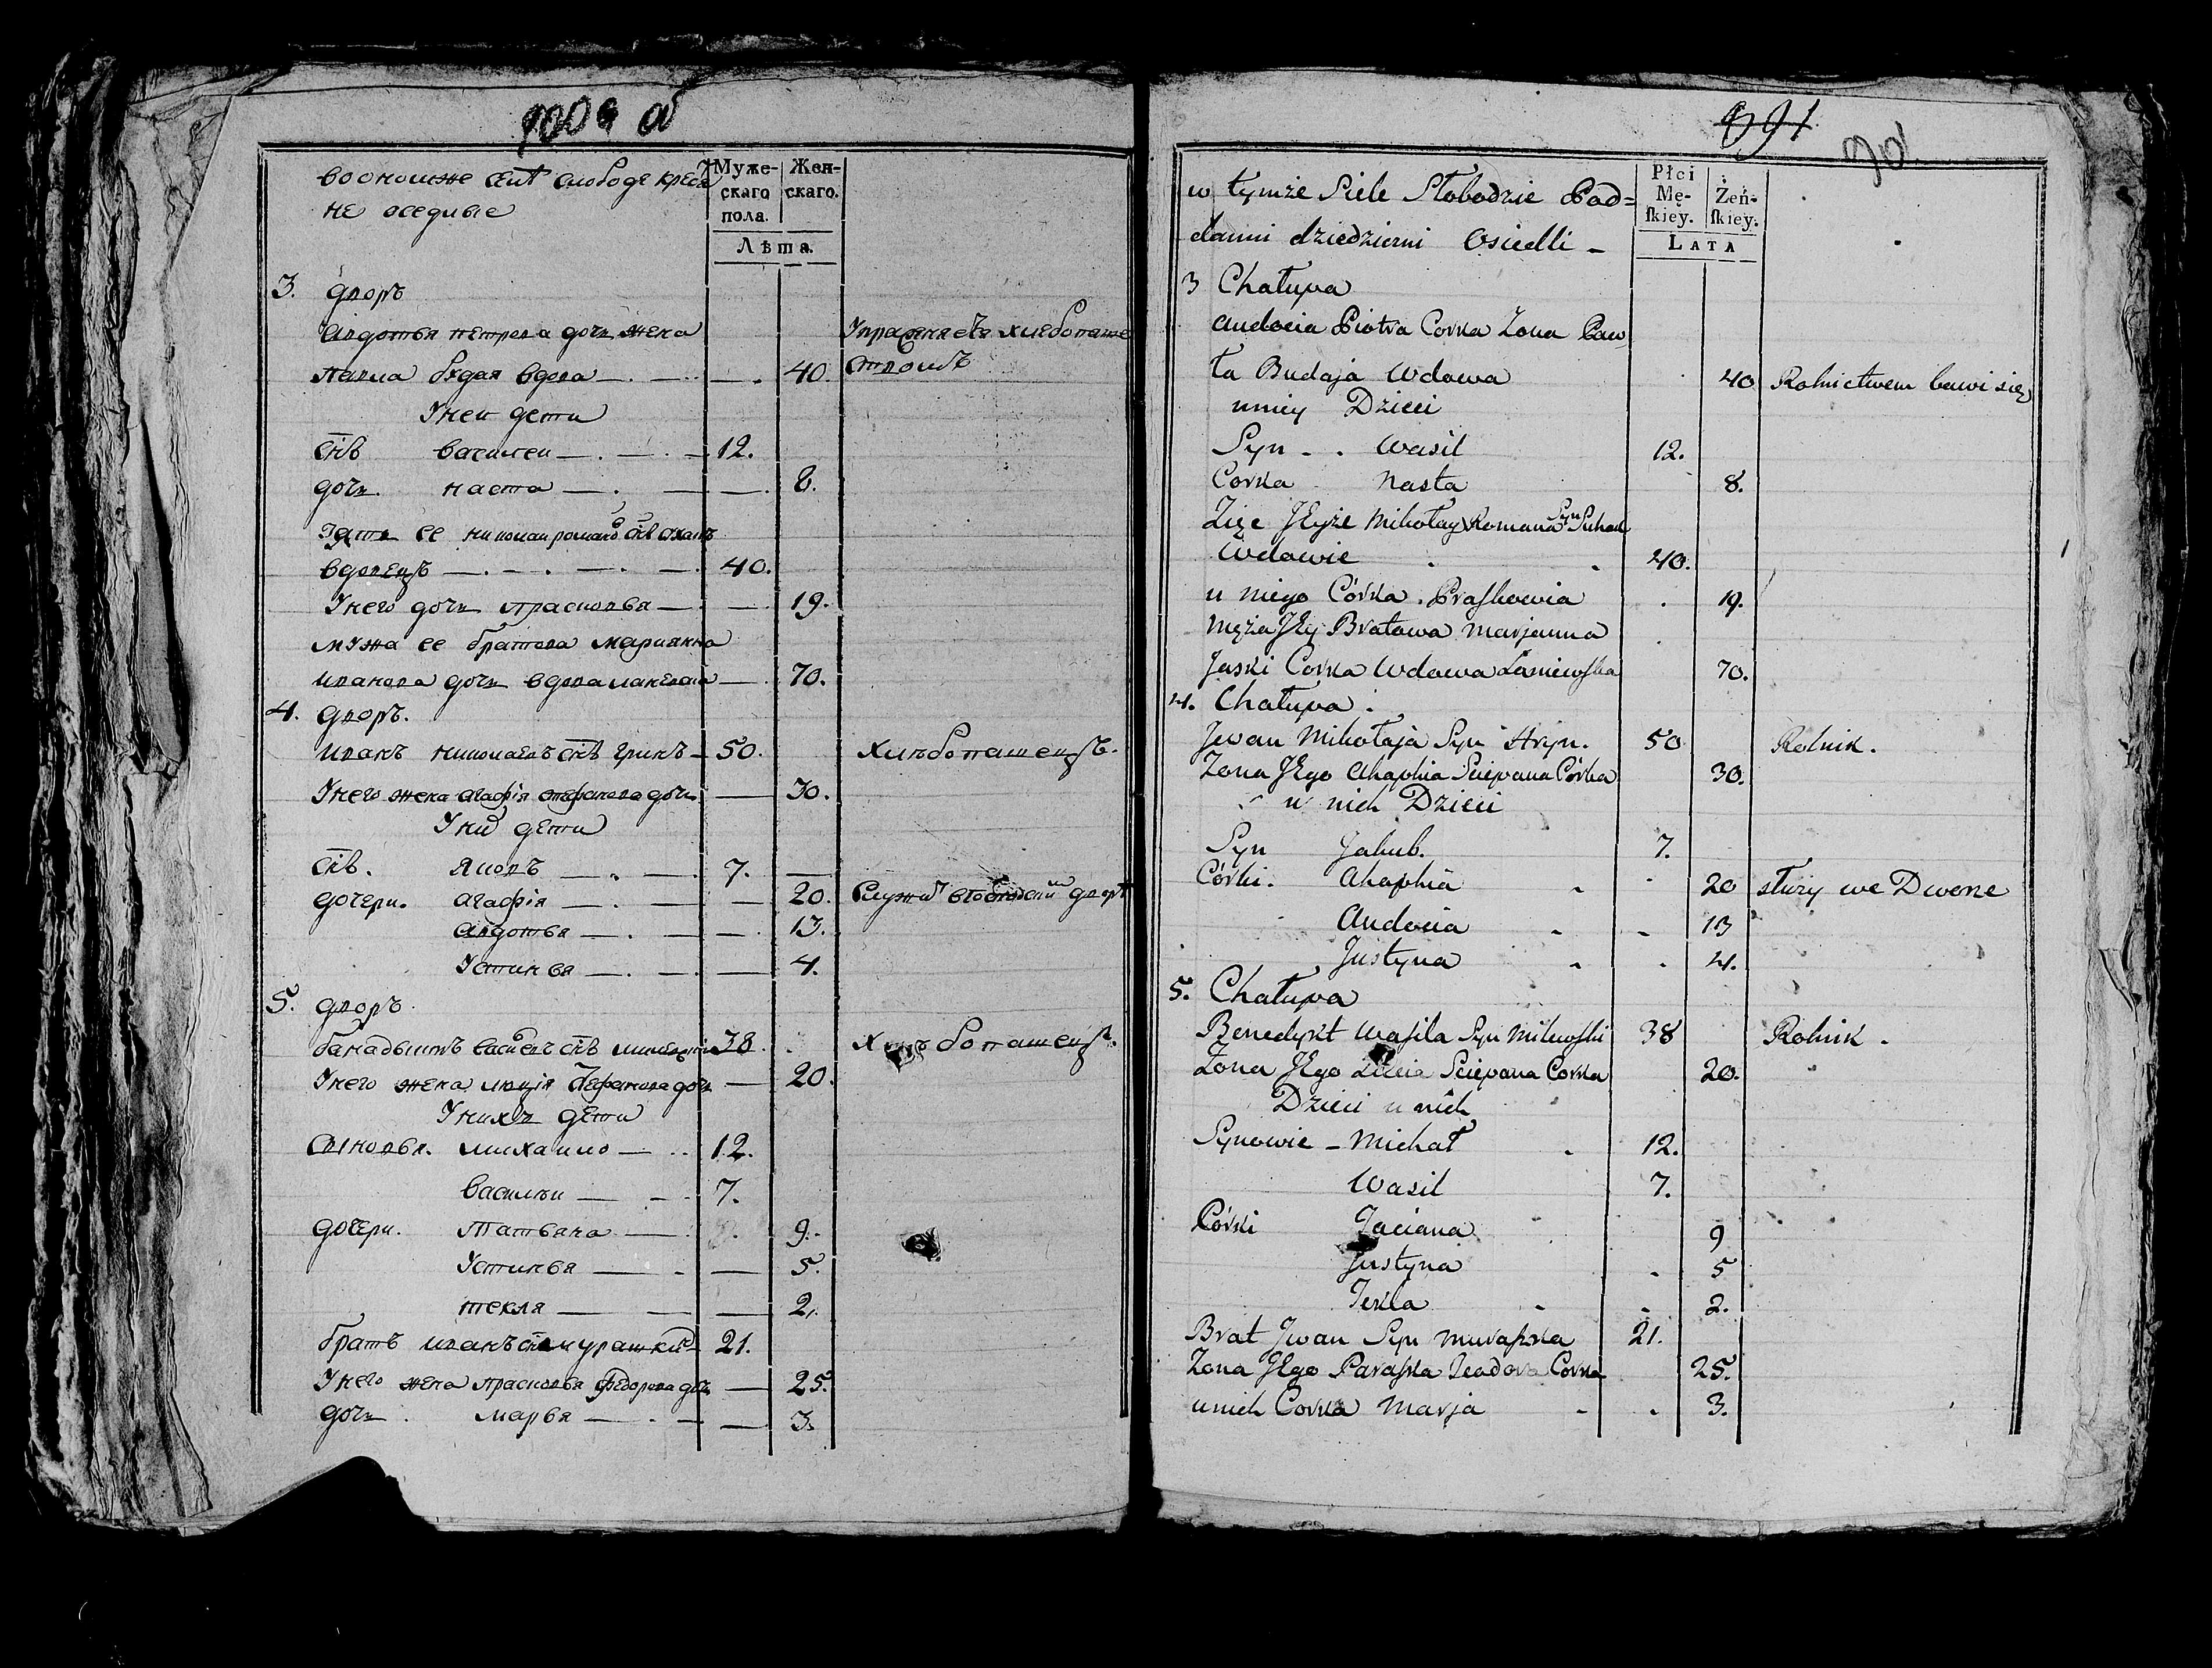 воономже селѣ слободе кресл
не оседлые
Муже-
скаго
пола.
Жен-
скаго.
Лѣта.
3. дворъ
авдотья петрова дочь жена
павла будая вдова 40. Упражняется хлебопаше
ством
У неи дети
снъ василеи 12.
дочь наста 8.
зять ее николаи романо снъ
вдовецъ 40.
У него дочь прасковья 19.
мужа ее братова марианна
иванова дочь вдова 70.
4. дворъ.
иванъ николаевъ снъ гринъ 50. хлѣбопашецъ.
У него жена агафія стефанова дочь 30.
У них дети
снъ. яковъ 7.
дочери. агафія 20. Служит дворѣ
авдотья 13.
Устинья 4.
5. дворъ
василев снъ 38. хлѣбопашецъ.
У него жена люція стефанова дочь 20.
У нихъ дети
сыновья. михаило 12.
василѣи 7.
дочери. татьяна 9.
Устинья 5.
текля 2.
братъ иванъ снъ мурашкы 21.
У него жена прасковья федорова дочь 25.
дочь марья 3.
691
70
w tymże Siele Słobodzie Pod=
danni dziedziczni Osiedli
Płci
Mę-
skiey.
Żeń-
skiey.
LATA
3 Chałupa
Audocia Piotra Corka Zona Paw
ła Budaja Wdowa 40 Rolnictwem bawi się
u niey Dzieci
Syn Wasil 12.
Corka Nasta 8.
Zięc JEyże Mikołay Romana Syn
Wdowiec 40.
u niego Córka Praskowia 19.
Męża JEy Bratowa Marjanna
Jaski Corka Wdowa 70.
4. Chałupa.
Jwan Mikołaja Syn Hryn. 50 Rolnik.
Zona JEgo Ahaphia Sciepana Córka 30.
u nich Dzieci
Syn Jakub. 7.
Córki. Ahaphia 20 służy we Dworze
Audocia 13
Justyna 4.
5. Chałupa
Benedykt Wasila Syn Milewski 38 Rolnik.
Zona JEgo Łucia Sciepana Corka 20.
Dzieci u nich
Synowie Michał 12.
Wasil 7.
Córki Taciana 9
Justyna 5
Tekla 2.
Brat Jwan Syn Muraszka 21.
Zona JEgo Paraska Teodora Corka 25.
u nich Corka Marja 3.